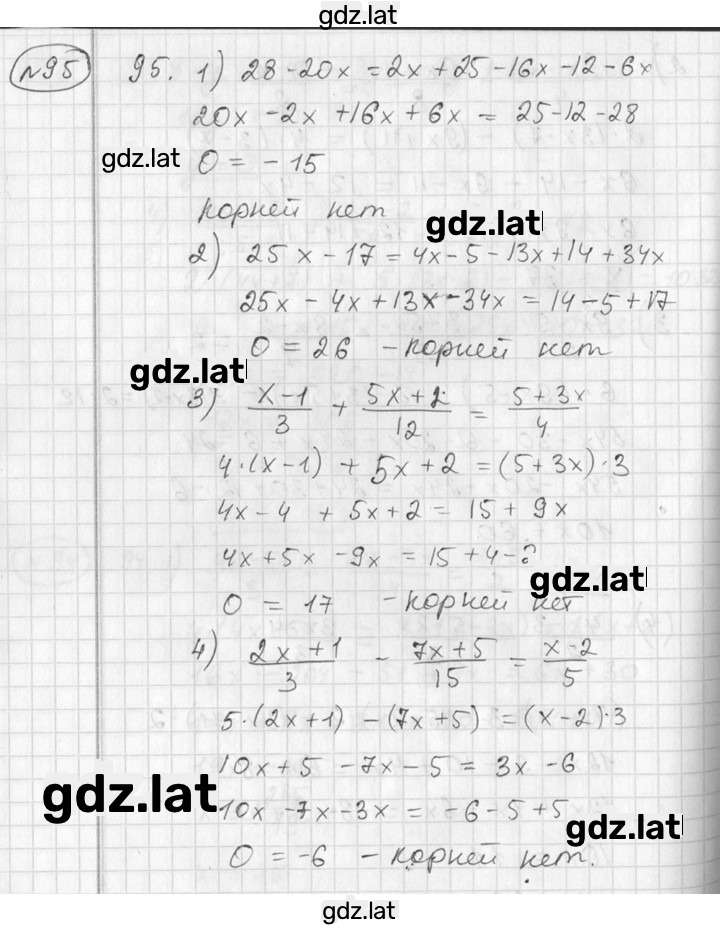 gdz.lat
№95
95. 1) 28 - 20x = 2x + 25 - 16x - 12 - 6x
20x - 2x + 16x + 6x = 25 - 12 - 28
gdz.lat
0 = - 15
корней нет
gdz.lat
2) 25x - 17 = 4x - 5 - 13x + 14 + 34x
25x - 4x + 13x - 34x = 14 - 5 + 17
0 = 26 - корней нет
gdz.lat
3) (x - 1)/3 + (5x + 2)/12 = (5 + 3x)/4
4·(x - 1) + 5x + 2 = (5 + 3x)·3
4x - 4 + 5x + 2 = 15 + 9x
4x + 5x - 9x = 15 + 4 - 2
gdz.lat
0 = 17 - корней нет
4) (2x + 1)/3 - (7x + 5)/15 = (x - 2)/5
5·(2x + 1) - (7x + 5) = (x - 2)·3
10x + 5 - 7x - 5 = 3x - 6
gdz.lat
10x - 7x - 3x = - 6 - 5 + 5
gdz.lat
0 = -6 - корней нет.
gdz.lat